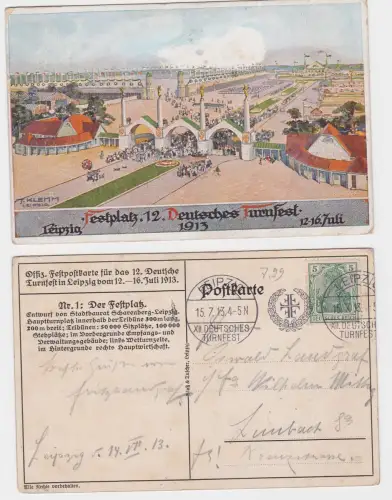 F. KLEMM
LEIPZIG
Festplatz. 12. Deutsches Turnfest.
Leipzig 1913 12-16. Juli
Offiz. Festpostkarte für das 12. Deutsche
Turnfest in Leipzig vom 12.—16. Juli 1913.
Nr. 1: Der Festplatz.
Entwurf von Stadtbaurat Scharenberg-Leipzig.
Hauptturnplatz innerhalb der Tribüne 300 m lang,
200 m breit; Tribünen: 50000 Sitzplätze, 100000
Stehplätze; im Vordergrunde Empfangs- und
Verwaltungsgebäude; links Wetturnzelte,
im Hintergrunde rechts Hauptwirtschaft.
Leipzig d. 14. VII. 13.
Alle Rechte vorbehalten.
7,99
Postkarte
LEIPZIG
15.7.13.4-5N
XII.DEUTSCHES
TURNFEST
5 5
LEIPZIG
XII.DEUTSCHES
TURNFEST
Oswald Landgraf
Wilhelm
Limbach